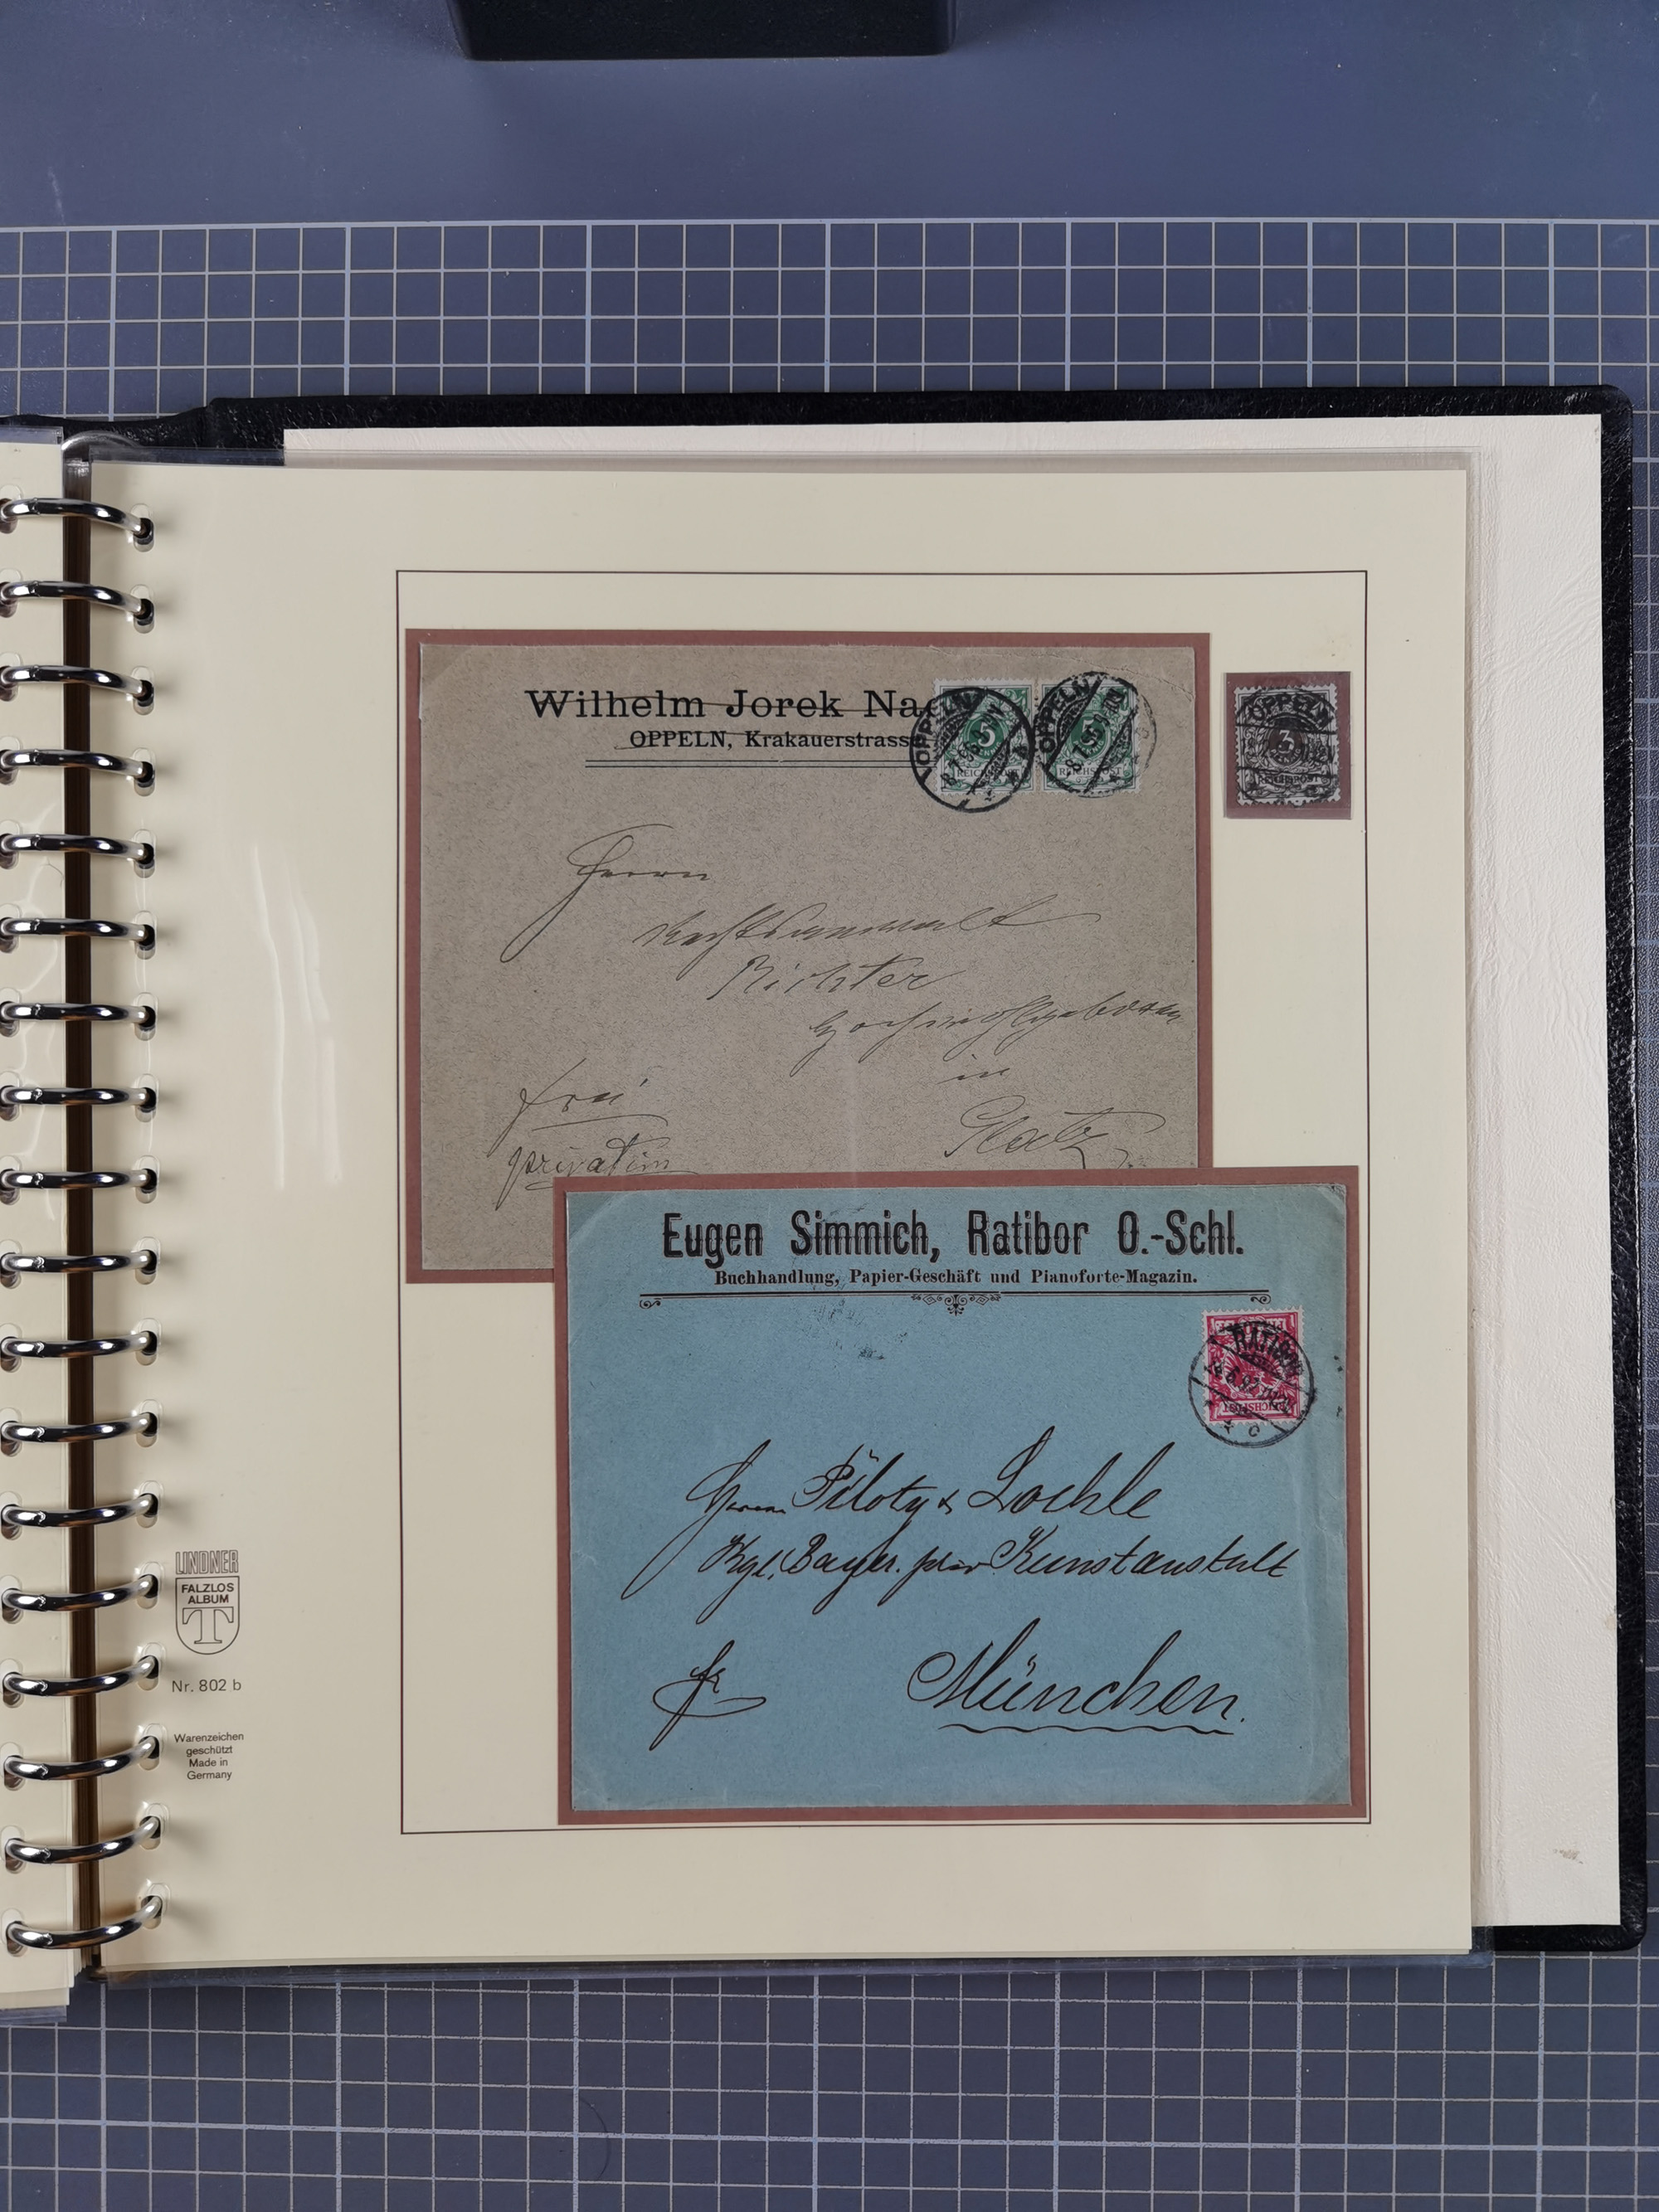 Wilhelm Jorek Na
OPPELN, Krakauerstrass
OPPELN
8.7.95
5
REICHSPOST
OPPELN
8.7.95
5
REICHSPOST
OPPELN
3
REICHSPOST
Herrn
Rechtsanwalt
Richter
Hochwohlgeboren
in
Glatz
frei
privatim
Eugen Simmich, Ratibor O.-Schl.
Buchhandlung, Papier-Geschäft und Pianoforte-Magazin.
RATIBOR
REICHSPOST
Herren Piloty & Loehle
Kgl. Bayer. priv Kunstanstalt
fr
München.
LINDNER
FALZLOS
ALBUM
T
Nr. 802 b
Warenzeichen
geschützt
Made in
Germany